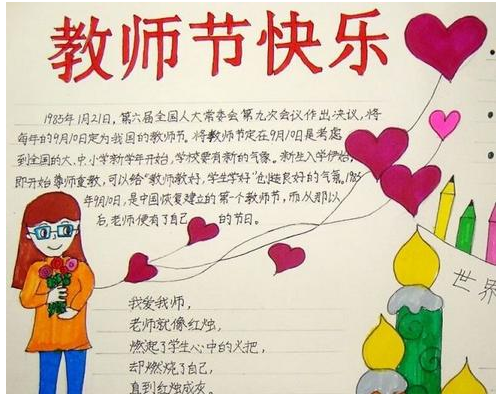 教师节快乐
1985年1月21日,第六届全国人大常委会第九次会议作出决议,将
每年的9月10日定为我国的教师节。将教师节定在9月10日是考虑
到全国的大、中小学新学年开始,学校要有新的气象。新生入学伊始,
即开始尊师重教,可以给“教师教好,学生学好”创造良好的气氛。1985
年9月10日,是中国恢复建立的第一个教师节,而从那以
后,老师便有了自己的节日。
我爱我师,
老师就像红烛,
燃起了学生心中的火把,
却燃烧了自己,
直到红烛成灰。
世界